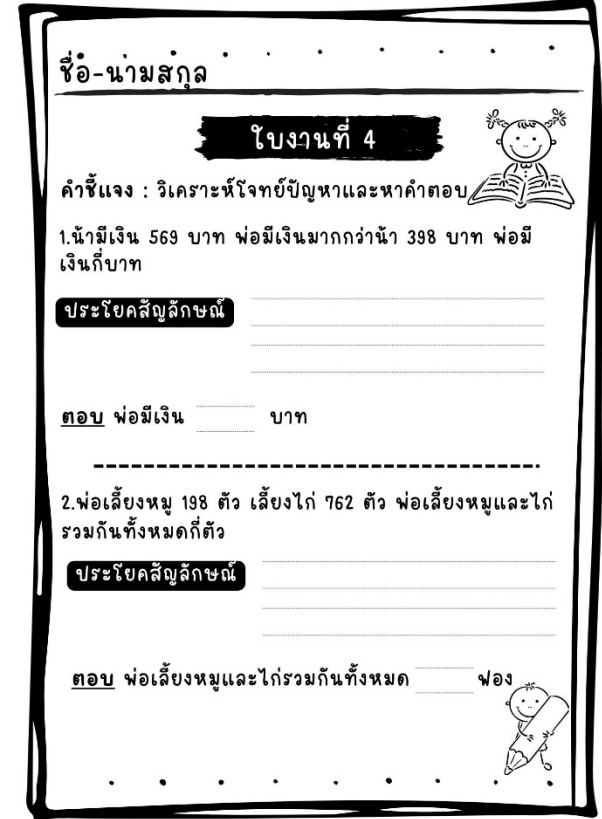 ชื่อ-นามสกุล
ใบงานที่ 4
คำชี้แจง : วิเคราะห์โจทย์ปัญหาและหาคำตอบ
1.น้ามีเงิน 569 บาท พ่อมีเงินมากกว่าน้า 398 บาท พ่อมี
เงินกี่บาท
ประโยคสัญลักษณ์
ตอบ พ่อมีเงิน บาท
2.พ่อเลี้ยงหมู 198 ตัว เลี้ยงไก่ 762 ตัว พ่อเลี้ยงหมูและไก่
รวมกันทั้งหมดกี่ตัว
ประโยคสัญลักษณ์
ตอบ พ่อเลี้ยงหมูและไก่รวมกันทั้งหมด ฟอง